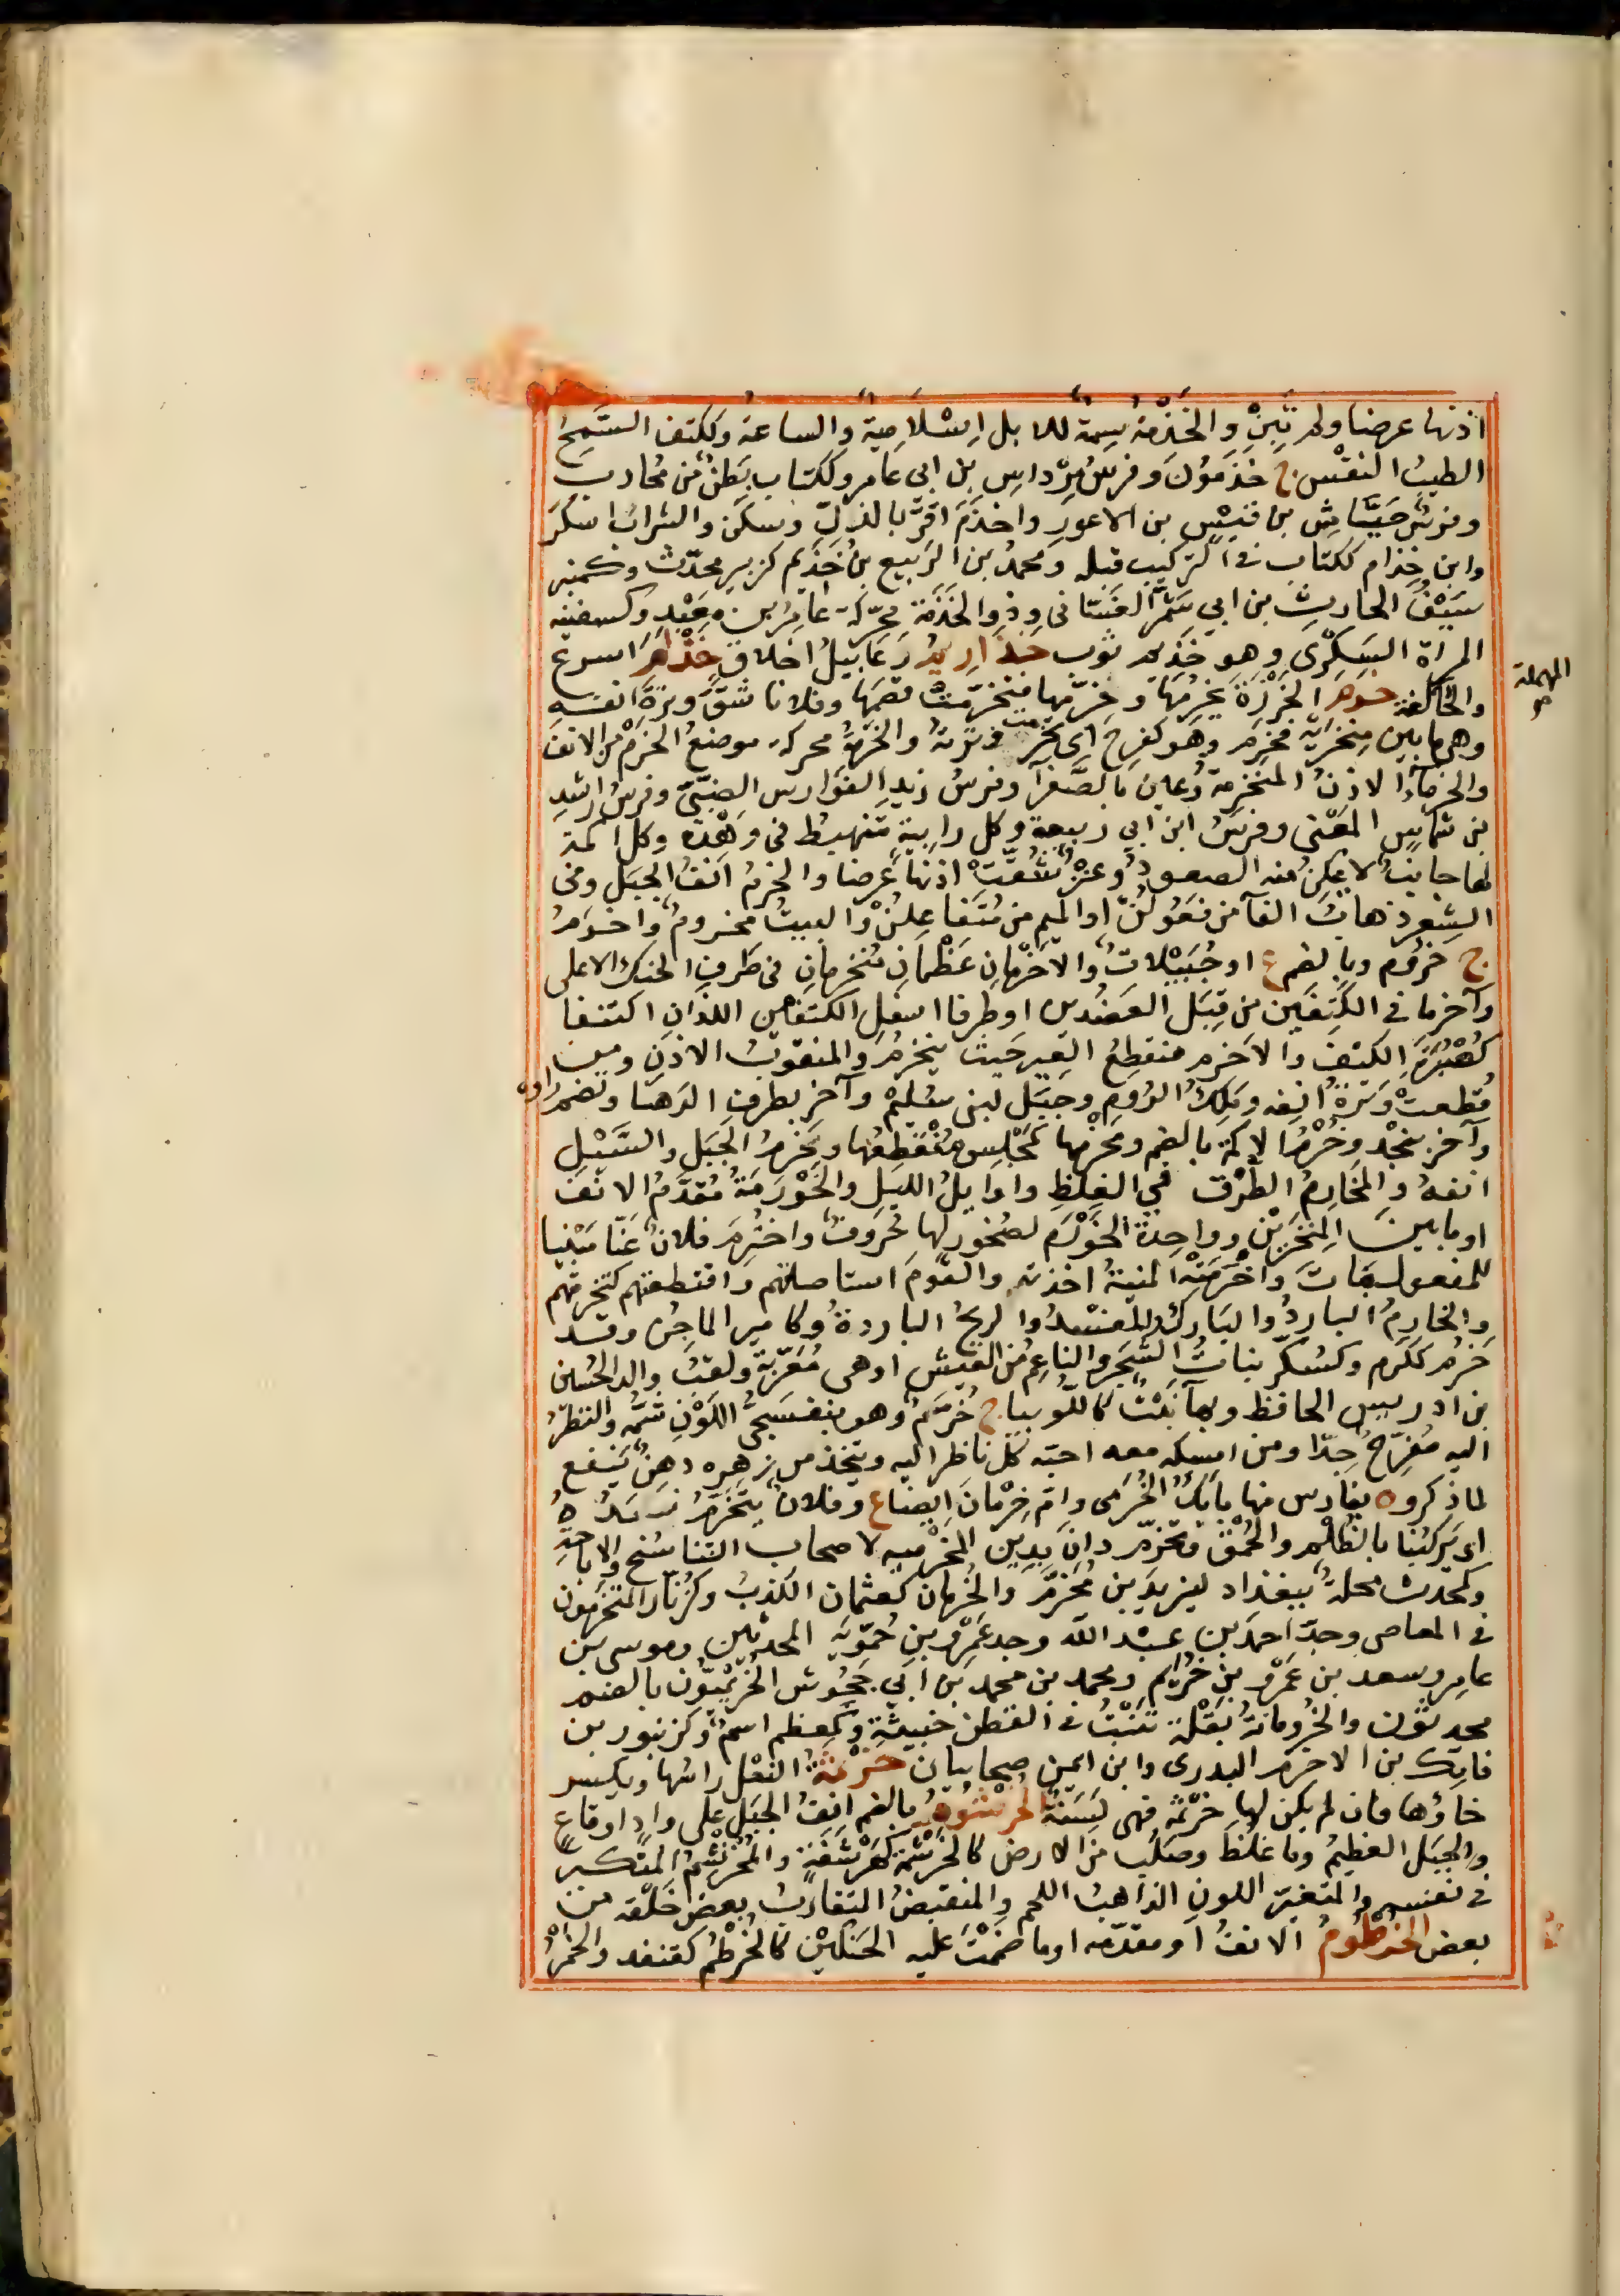 اذنها عرضا ولم تبن والخذمة سمة للابل اسلامية والساعة وككتف السمح
الطيب النفس ج خذمون وفرس مرداس بن ابى عامر وككتاب بطن من محارب
وفرس حياش بن قيس بن الاعور واخذم اقر بالذل وسكن والشراب اسكر
وابن خذام ككتاب فى التركيب قبله ومحمد بن الربيع بن خذيم كزبير محدث وكمنبر
سيف الحارث بن ابى شمر الغسانى وذو الخذمة محركة عامر بن معبد وكسفينه
المراة السكرى وهو خذيم ثوب خذاريم رعابيل اخلاق خذلم اسرع
والحالفة خرم الخرزة يخرمها وخرمها فتخرمت فصمها وفلانا شق وترة انفه
وهى ما بين منخريه فخرم وهو كفرح اى تخرمت وترته والخرمة محركة موضع الخرم من الانف
والخرماء الاذن المنخرمة وعين بالصفرآ وفرس زيد الفوارس الضبى وفرس راشد
بن شماس المعنى وفرس ابن ابى ربيعة وكل رابية تنهبط فى وهدة وكل اكمة
لها جانب لا يمكن منه الصعود وعنز شقت اذنها عرضا والخرم انف الجبل وفى
الشعر ذهاب الفآ من فعولن او الميم من مفاعلتن والبيت مخروم واخرم
ج خروم وبالضم ع او جبيلات والاخرمان عظمان منخرمان فى طرف الحنك الاعلى
وآخر ما فى الكتفين من قبل العضدين او طرفا اسفل الكتفين اللذان اكتنفا
كعبرة الكتف والاخرم منقطع العير حيث ينخرم والمثقوب الاذن ومن
قطعت وترة انفه وملك الروم وجبل لبنى سليم وآخر بطرف الدهنا وتضم راوه
وآخر بنجد وخرم الاكمة بالضم ومخرمها كمجلس منقطعها ومخرم الجبل والسيل
انفه والمخارم الطرق فى الغلظ واوايل الليل والخورمة مقدم الانف
او ما بين المنخرين وواحدة الخورم لصخور لها خروق واخترم فلان عنا مبنيا
للمفعول مات واخترمته المنية اخذته والقوم استاصلتهم واقتطعتهم كتخرمتهم
والخارم البارد والتارك والمفسد والريح الباردة وكامير الماجن وقد
خرم ككرم وكسكر نبات الشجر والناعم من العيش او هى معربة ولقب والد الحسين
بن ادريس الحافظ وبهآ نبت كاللوبيا ج خرم وهو بنفسجى اللون شمه والنظر
اليه مفرح جدا ومن امسكه معه احبه كل ناظر اليه ويتخذ من زهره دهن ينفع
لما ذكر وه بفارس منها بابك الخرمى وام خرمان ايضا ع وفلان يتخرم زبده
اى يركبنا بالظلم والحمق وتخرم دان بدين الخرمية لاصحاب التناسخ والاباحة
وكمحدث محلة ببغداد ليزيد بن مخرم والخرمان كعثمان الكذب وكزنار المتخرمون
فى المعاصى وجد احمد بن عبد الله وجد عمرو بن حمويه المحدثين وموسى بن
عامر وسعد بن عمرو بن خريم ومحمد بن محمد بن ابى جحوش الخريميون بالضم
محدثون والخرومانة بقلة تنبت فى القطن خبيثة وكمعظم اسم وكزنبور بن
فاتك بن الاخرم البدرى وابن ايمن صحابيان خرثمة النعل راسها ويكسر
خاؤها فان لم يكن لها خرثمة فهى لسنة الخرشوم بالضم انف الجبل على واد او قاع
والجبل العظيم وما غلظ وصلب من الارض كالخرشمة كهرشفة والمخرنشم المتكبر
فى نفسه والمتغير اللون الذاهب اللحم والمنقبض المتقارب بعض خلقه من
بعض الخرطوم الانف او مقدمه او ما ضممت عليه الحنكين كالخرطم كقنفد والخمر
المهملة